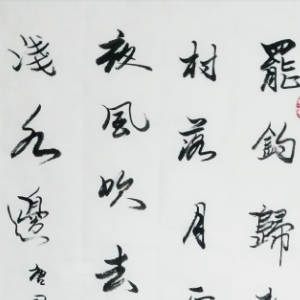 罷釣歸
村落月
夜風吹去
淺水邊
唐